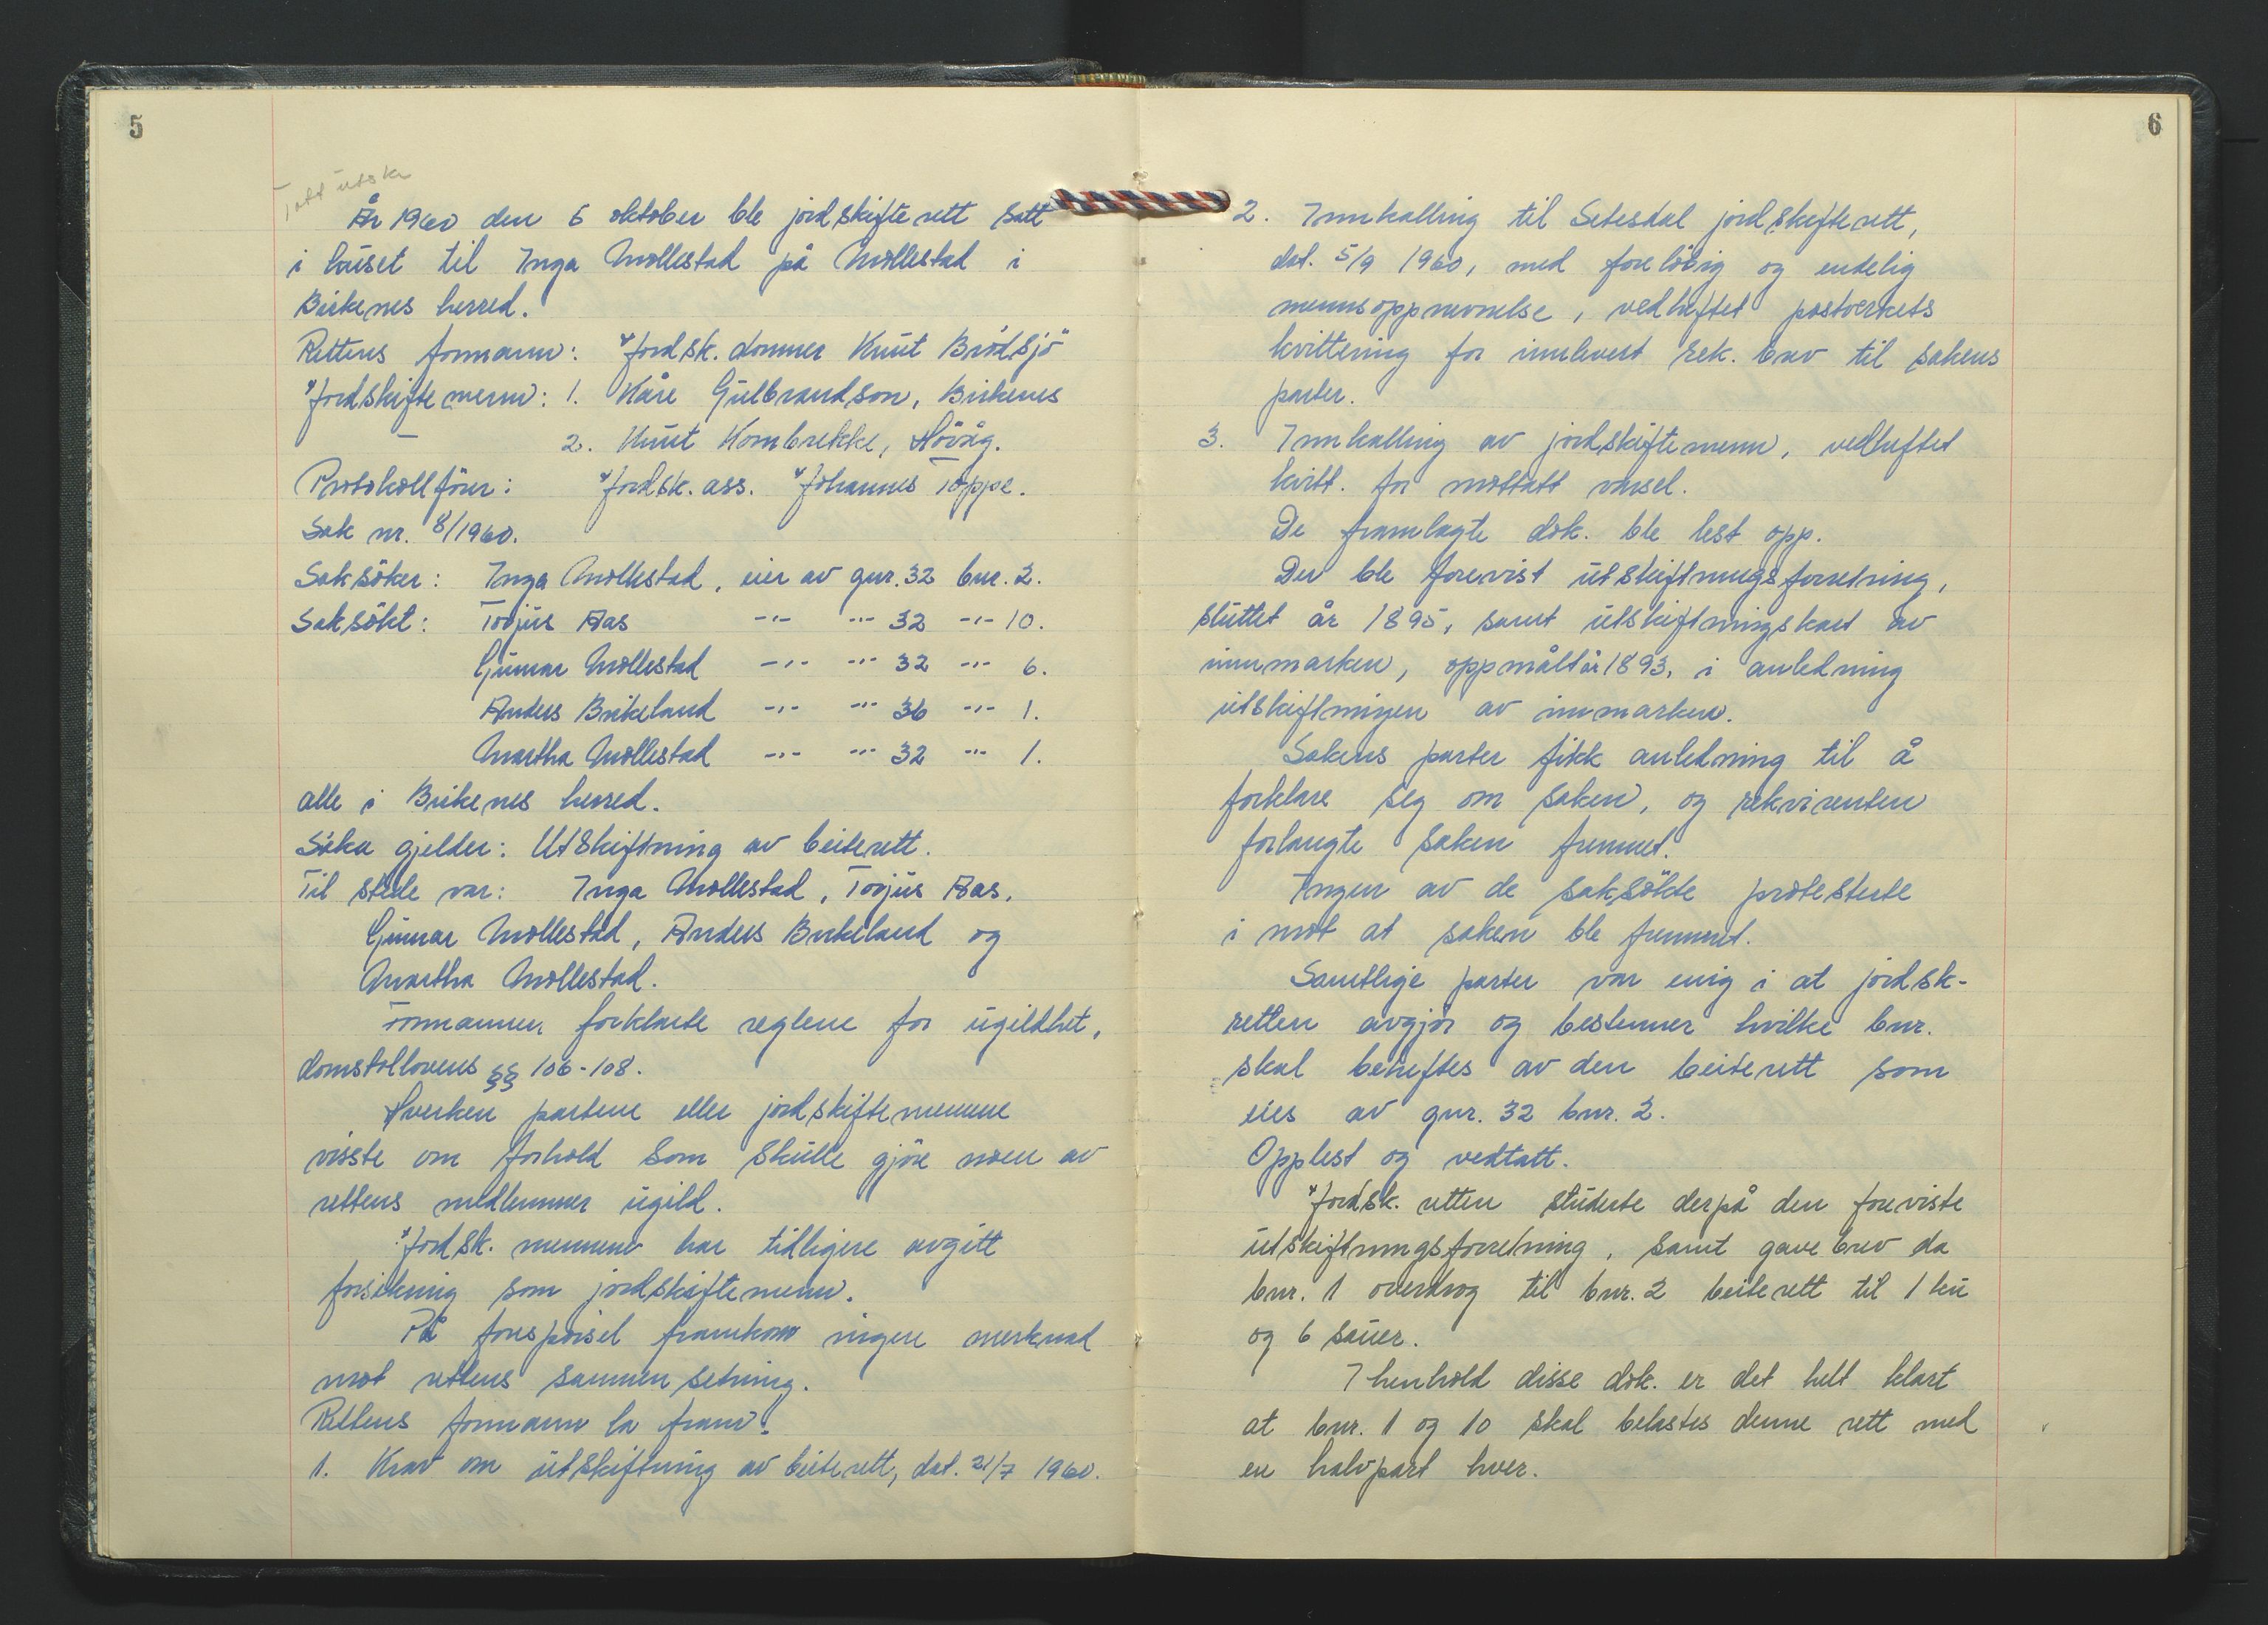 5
Tatt utskr
År 1960 den 6 oktober ble jordskifterett satt
i huset til Inga Mollestad på Mollestad i
Birkenes herred.
Rettens formann: Jordsk. dommer Knut Brødsjø
Jordskiftemenn: 1. Kåre Gulbrandson, Birkenes
— 2. Knut Kombrekke, Høvåg.
Protokollfører: Jordsk. ass. Johannes Toppe.
Sak nr. 8/1960.
Saksøker: Inga Mollestad, eier av gnr. 32 bnr. 2.
Saksøkt: Torjus Aas -"- -"- 32 -"- 10.
Gunnar Mollestad -"- -"- 32 -"- 6.
Anders Birkeland -"- -"- 36 -"- 1.
Martha Mollestad -"- -"- 32 -"- 1.
alle i Birkenes herred.
Saka gjelder: Utskiftning av beiterett.
Til stede var: Inga Mollestad, Torjus Aas,
Gunnar Mollestad, Anders Birkeland og
Martha Mollestad.
Formannen forklarte reglene for ugildhet,
domstollovens §§ 106-108.
Hverken partene eller jordskiftemennene
visste om forhold som skulle gjøre noen av
rettens medlemmer ugild.
Jordsk. mennene har tidligere avgitt
forsikring som jordskiftemenn.
På forespørsel framkom ingen merknad
mot rettens sammensetning.
Rettens formann la fram:
1. Krav om utskiftning av beiterett, dat. 21/7 1960.
6
2. Innkalling til Setesdal jordskifterett,
dat. 5/9 1960, med foreløbig og endelig
mennsoppnevnelse, vedheftet postverkets
kvittering for innlevert rek. brev til sakens
parter.
3. Innkalling av jordskiftemenn, vedheftet
kvitt. for mottatt varsel.
De framlagte dok. ble lest opp.
Der ble forevist utskiftningsforretning,
sluttet år 1895, samt utskiftningskart av
innmarken, oppmålt år 1893, i anledning
utskiftningen av innmarken.
Sakens parter fikk anledning til å
forklare seg om saken, og rekvirenten
forlangte saken fremmet.
Ingen av de saksøkte protesterte
i mot at saken ble fremmet.
Samtlige parter var enig i at jordsk-
retten avgjør og bestemmer hvilke bnr.
skal beheftes av den beiterett som
eies av gnr. 32 bnr. 2.
Opplest og vedtatt.
Jordsk. retten studerte derpå den foreviste
utskiftningsforretning, samt gavebrev da
bnr. 1 overdrog til bnr. 2 beiterett til 1 ku
og 6 sauer.
I henhold disse dok. er det helt klart
at bnr. 1 og 10 skal belastes denne rett med
en halvpart hver.